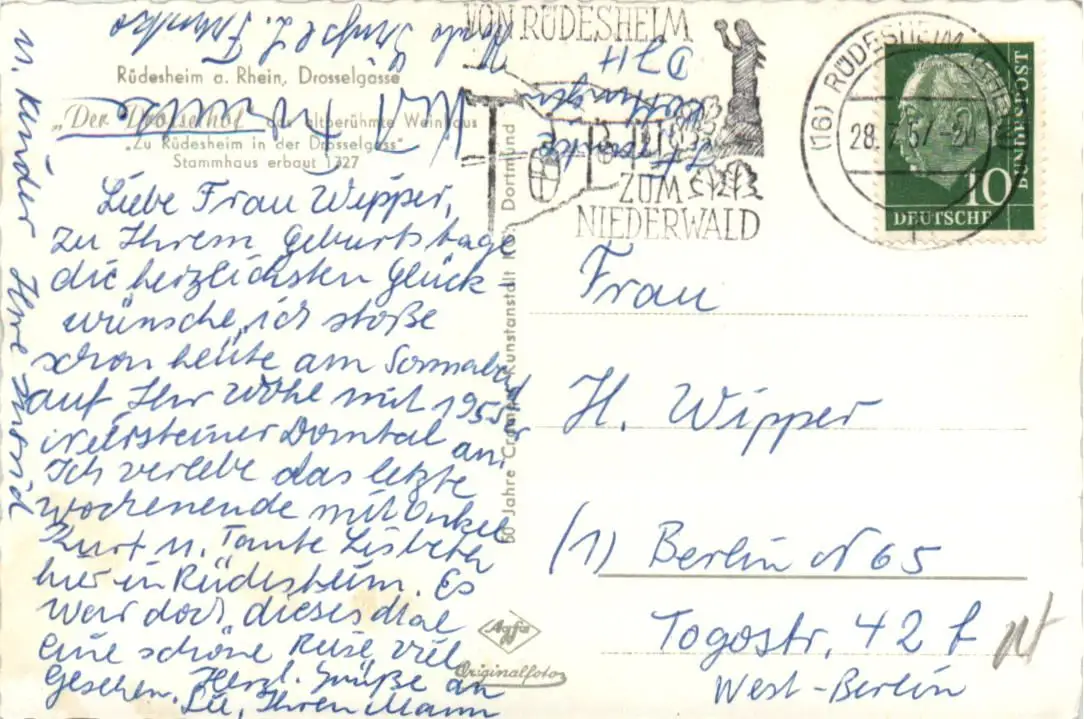 Rüdesheim a. Rhein, Drosselgasse
„Der Drosselhof" das altberühmte Weinhaus
„Zu Rüdesheim in der Drosselgass"
Stammhaus erbaut 1727
Liebe Frau Wipper,
zu Ihrem Geburtstage
die herzlichsten Glück-
wünsche, ich stoße
schon heute am Sonnabend
auf Ihr Wohl mit 1955er
Niersteiner Domtal an.
Ich verlebe das letzte
Wochenende mit Onkel
Kurt u. Tante Lisbeth
hier in Rüdesheim. Es
war doch dieses Mal
eine schöne Reise, viel
gesehen. Herzl. Grüße an
Sie, Ihren Mann
u. Kinder Ihre
60 Jahre Kunstanstalt Dortmund
Agfa
Originalfoto
VON RÜDESHEIM
ZUM
NIEDERWALD
(16) RÜDESHEIM (RHEIN)
28.7.57-20
10
DEUTSCHE
BUNDESPOST
Frau
H. Wipper
(1) Berlin N 65
Togostr. 42 f
West-Berlin